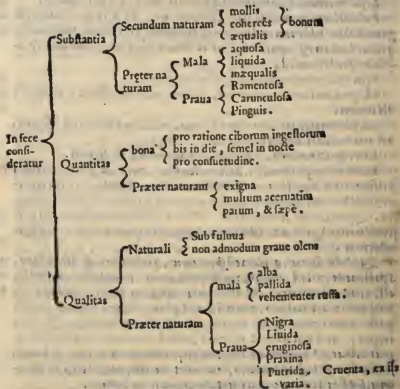 Substantia
Secundum naturam
mollis
coherẽs
æqualis
bonum
Pręter na
turam
Mala
aquosa
liquida
inæqualis
Praua
Ramentosa
Carunculosa
Pinguis.
In fece
consi-
deratur
Quantitas
bona
pro ratione ciborum ingestorum
bis in die, semel in nocte
pro consuetudine.
Præter naturam
exigna
multum aceruatim
parum, & sæpè.
Qualitas
Naturali
Subfulua
non admodum graue olens
Præter naturam
mala
alba
pallida
vehementer ruffa.
Praua
Nigra
Liuida
eruginosa
Praxina
Putrida. Cruenta, ex ijs
varia.